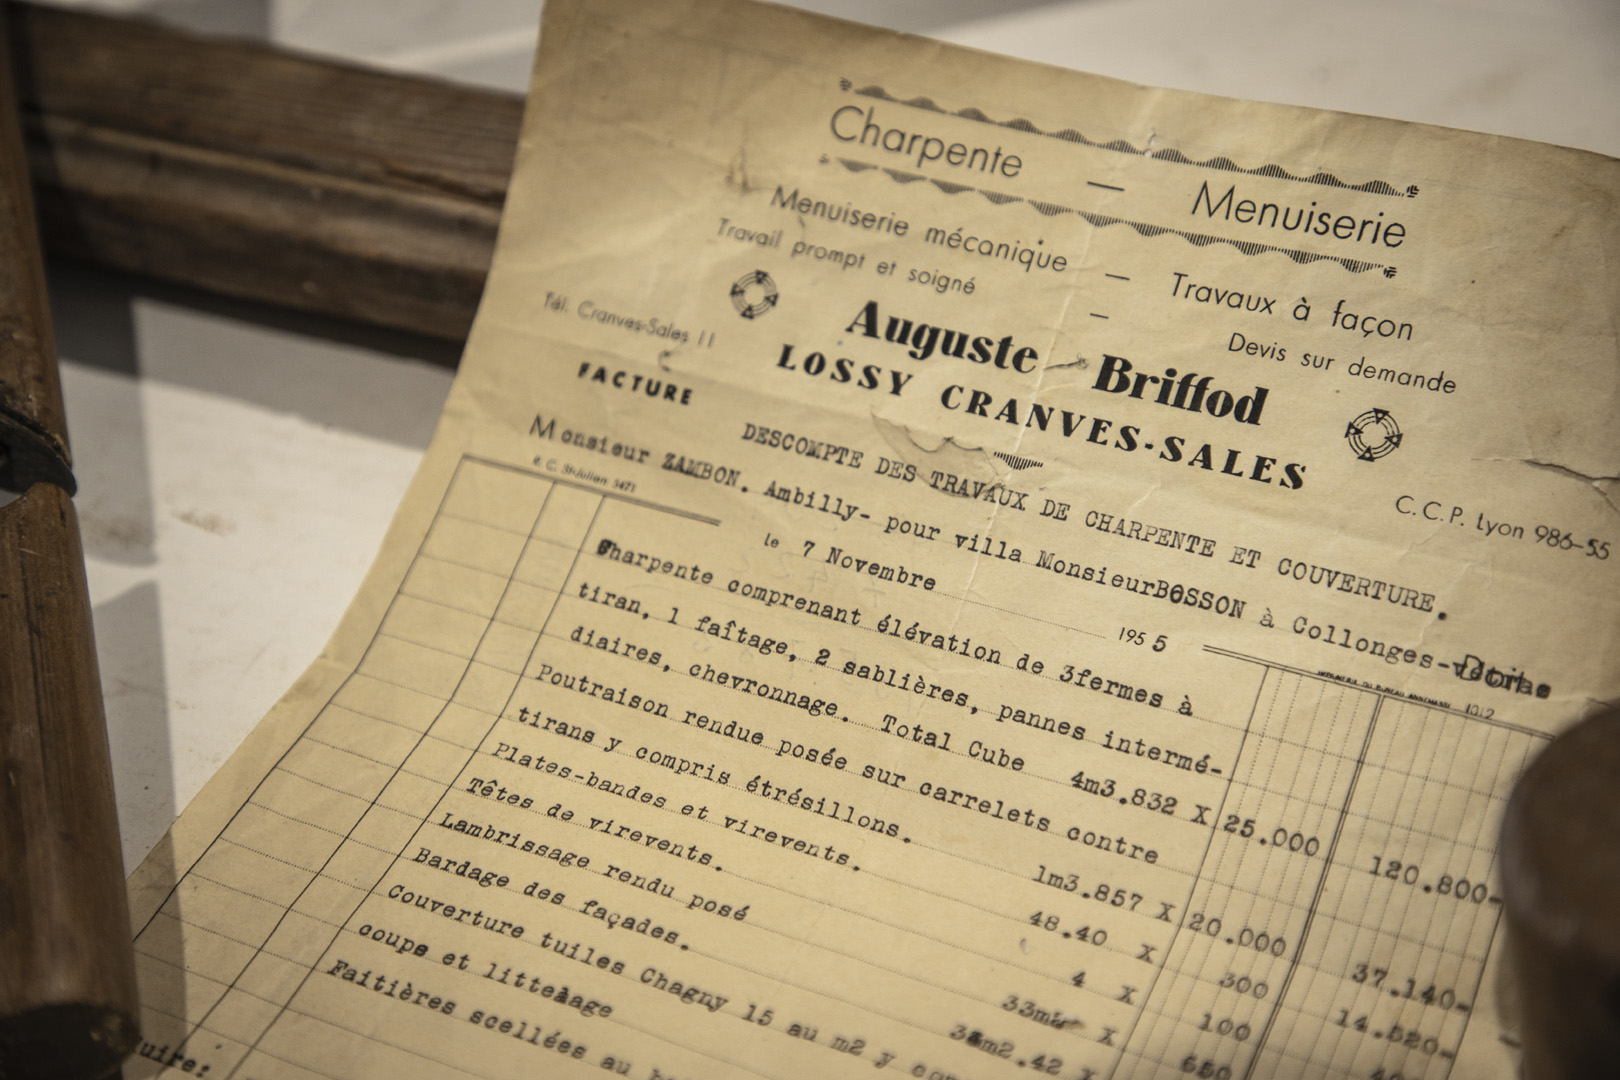 Charpente — Menuiserie
Menuiserie mécanique — Travaux à façon
Travail prompt et soigné — Devis sur demande
Auguste Briffod
Tél. Cranves-Sales 11
LOSSY CRANVES-SALES
FACTURE
C.C.P. Lyon 986-55
DESCOMPTE DES TRAVAUX DE CHARPENTE ET COUVERTURE.
Monsieur ZAMBON. Ambilly- pour villa MonsieurBOSSON à Collonges-
R. C. St-Julien 3471
le 7 Novembre 1955
1012
Charpente comprenant élévation de 3fermes à
tiran, 1 faîtage, 2 sablières, pannes intermé-
diaires, chevronnage. Total Cube 4m3.832 X 25.000 120.800-
Poutraison rendue posée sur carrelets contre
tirans y compris étrésillons. 1m3.857 X 20.000 37.140-
Plates-bandes et virevents. 48.40 X 300 14.520-
Têtes de virevents. 4 X 100
Lambrissage rendu posé 33m2 X 650
Bardage des façades. m2.42 X
Couverture tuiles Chagny 15 au m2 y
coupe et
Faitières scellées au